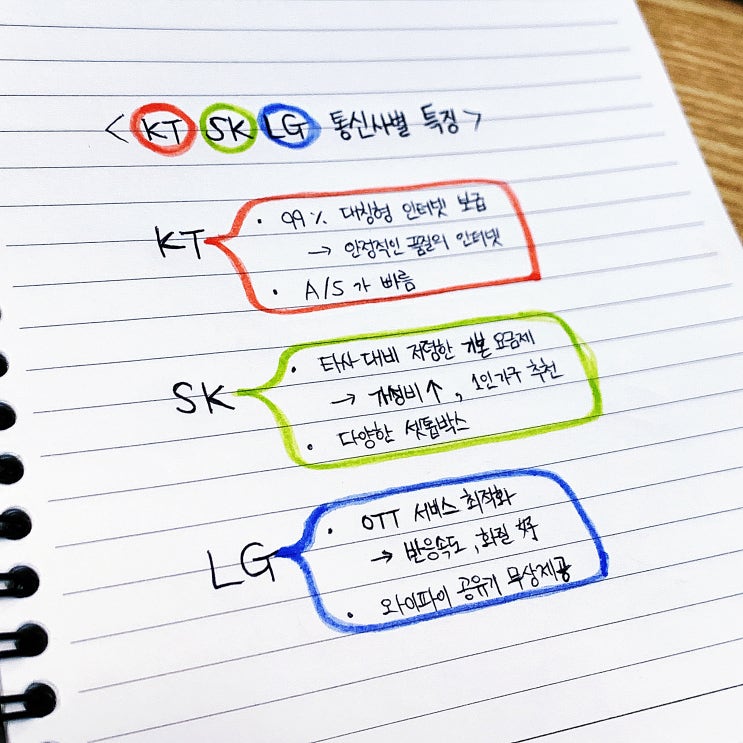 < KT SK LG 통신사별 특징 >
KT
· 99% 대칭형 인터넷 보급
→ 안정적인 품질의 인터넷
· A/S가 빠름
SK
· 타사 대비 저렴한 기본 요금제
→ 가성비↑, 1인가구 추천
· 다양한 셋톱박스
LG
· OTT 서비스 최적화
→ 반응속도, 화질 好
· 와이파이 공유기 무상제공